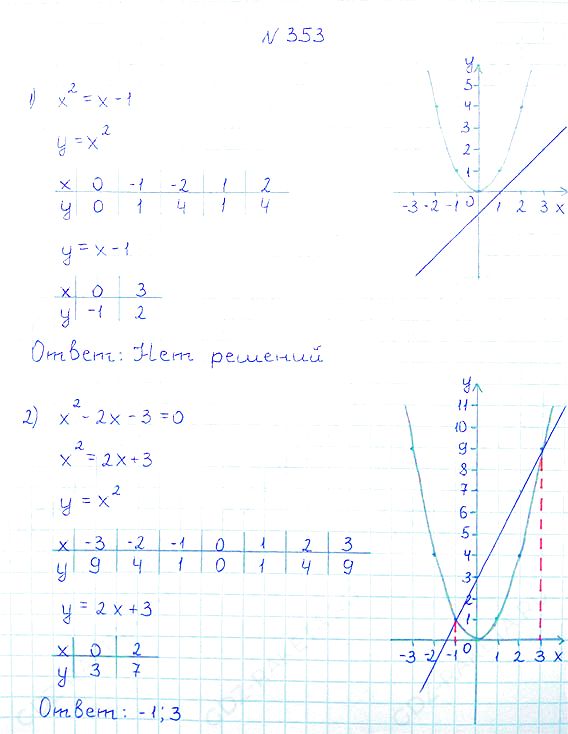 N 353
1) x² = x - 1
y = x²
x 0 -1 -2 1 2
y 0 1 4 1 4
y = x - 1
x 0 3
y -1 2
Ответ: Нет решений
y
5
4
3
2
1
-3 -2 -1 0 1 2 3 x
2) x² - 2x - 3 = 0
x² = 2x + 3
y = x²
x -3 -2 -1 0 1 2 3
y 9 4 1 0 1 4 9
y = 2x + 3
x 0 2
y 3 7
Ответ: -1; 3
y
11
10
9
8
7
6
5
4
3
2
1
-3 -2 -1 0 1 2 3 x